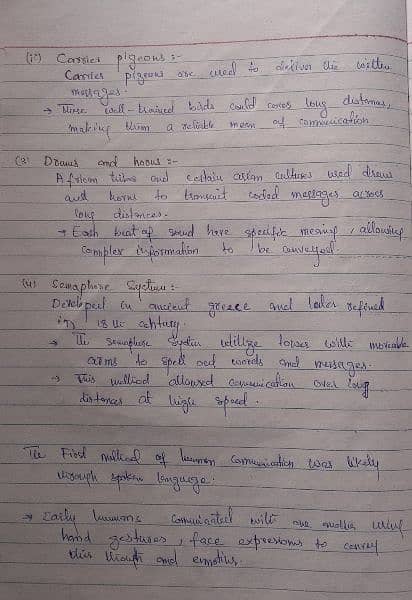 (i) Carrier pigeons :-
Carrier pigeons are used to deliver the written
messages.
→ These well-trained birds could cover long distances,
making them a reliable mean of communication
(2) Drums and horns :-
African tribes and certain asian cultures used drums
and horns to transmit coded messages across
long distances.
→ Each beat of sound have specific meaning, allowing
complex information to be conveyed.
Semaphore System :-
Developed in ancient greece and later refined
in 18 th century.
→ The semaphore system utilize towers with moveable
arms to spell out words and messages.
→ This method allowed communication over long
distances at high speed.
The First method of human communication was likely
through spoken language.
→ Early humans communicated with one another using
hand gestures, face expressions to convey
their though and emotions.